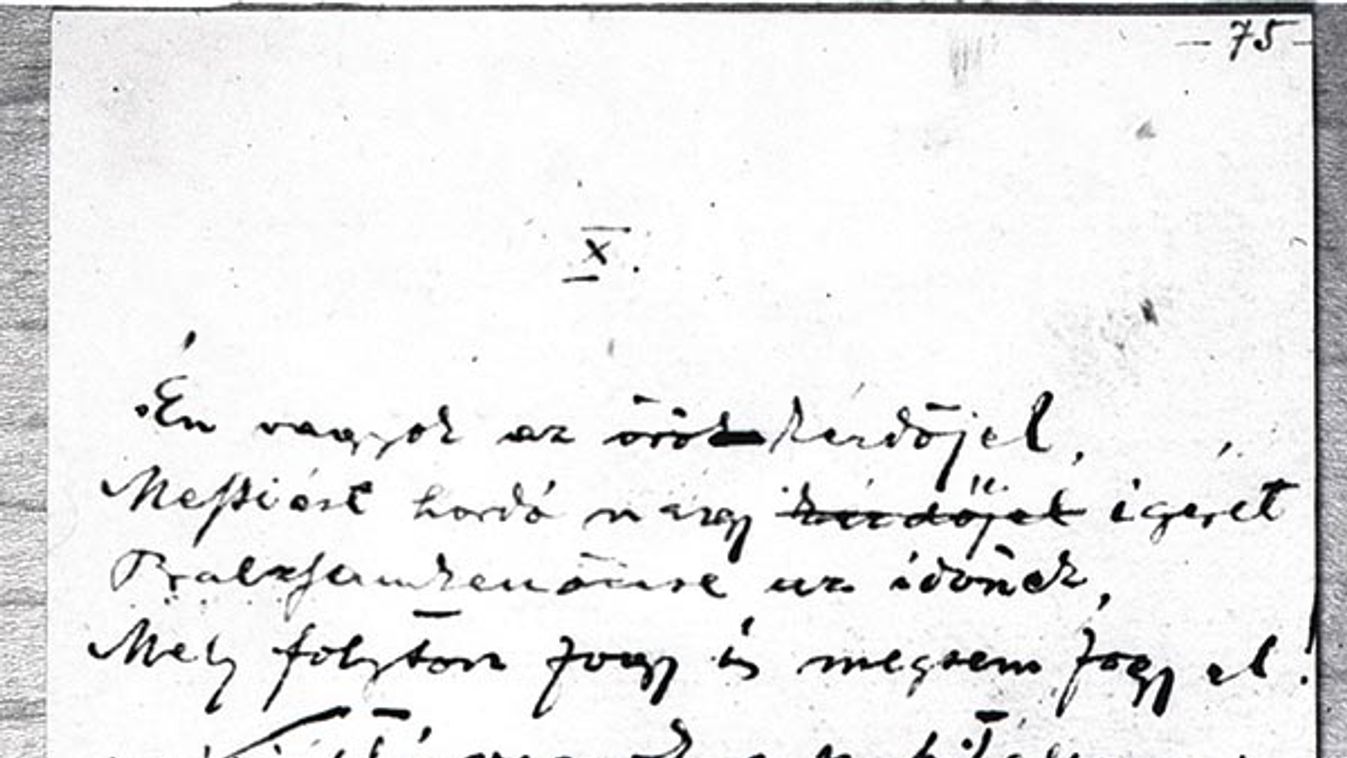 - 75 -
X.
Én vagyok az örök kérdőjel,
Messiást hordó nagy ~~kérdőjel~~ igéret
az időnek,
Mely folyton fogy és megsem fogy el!